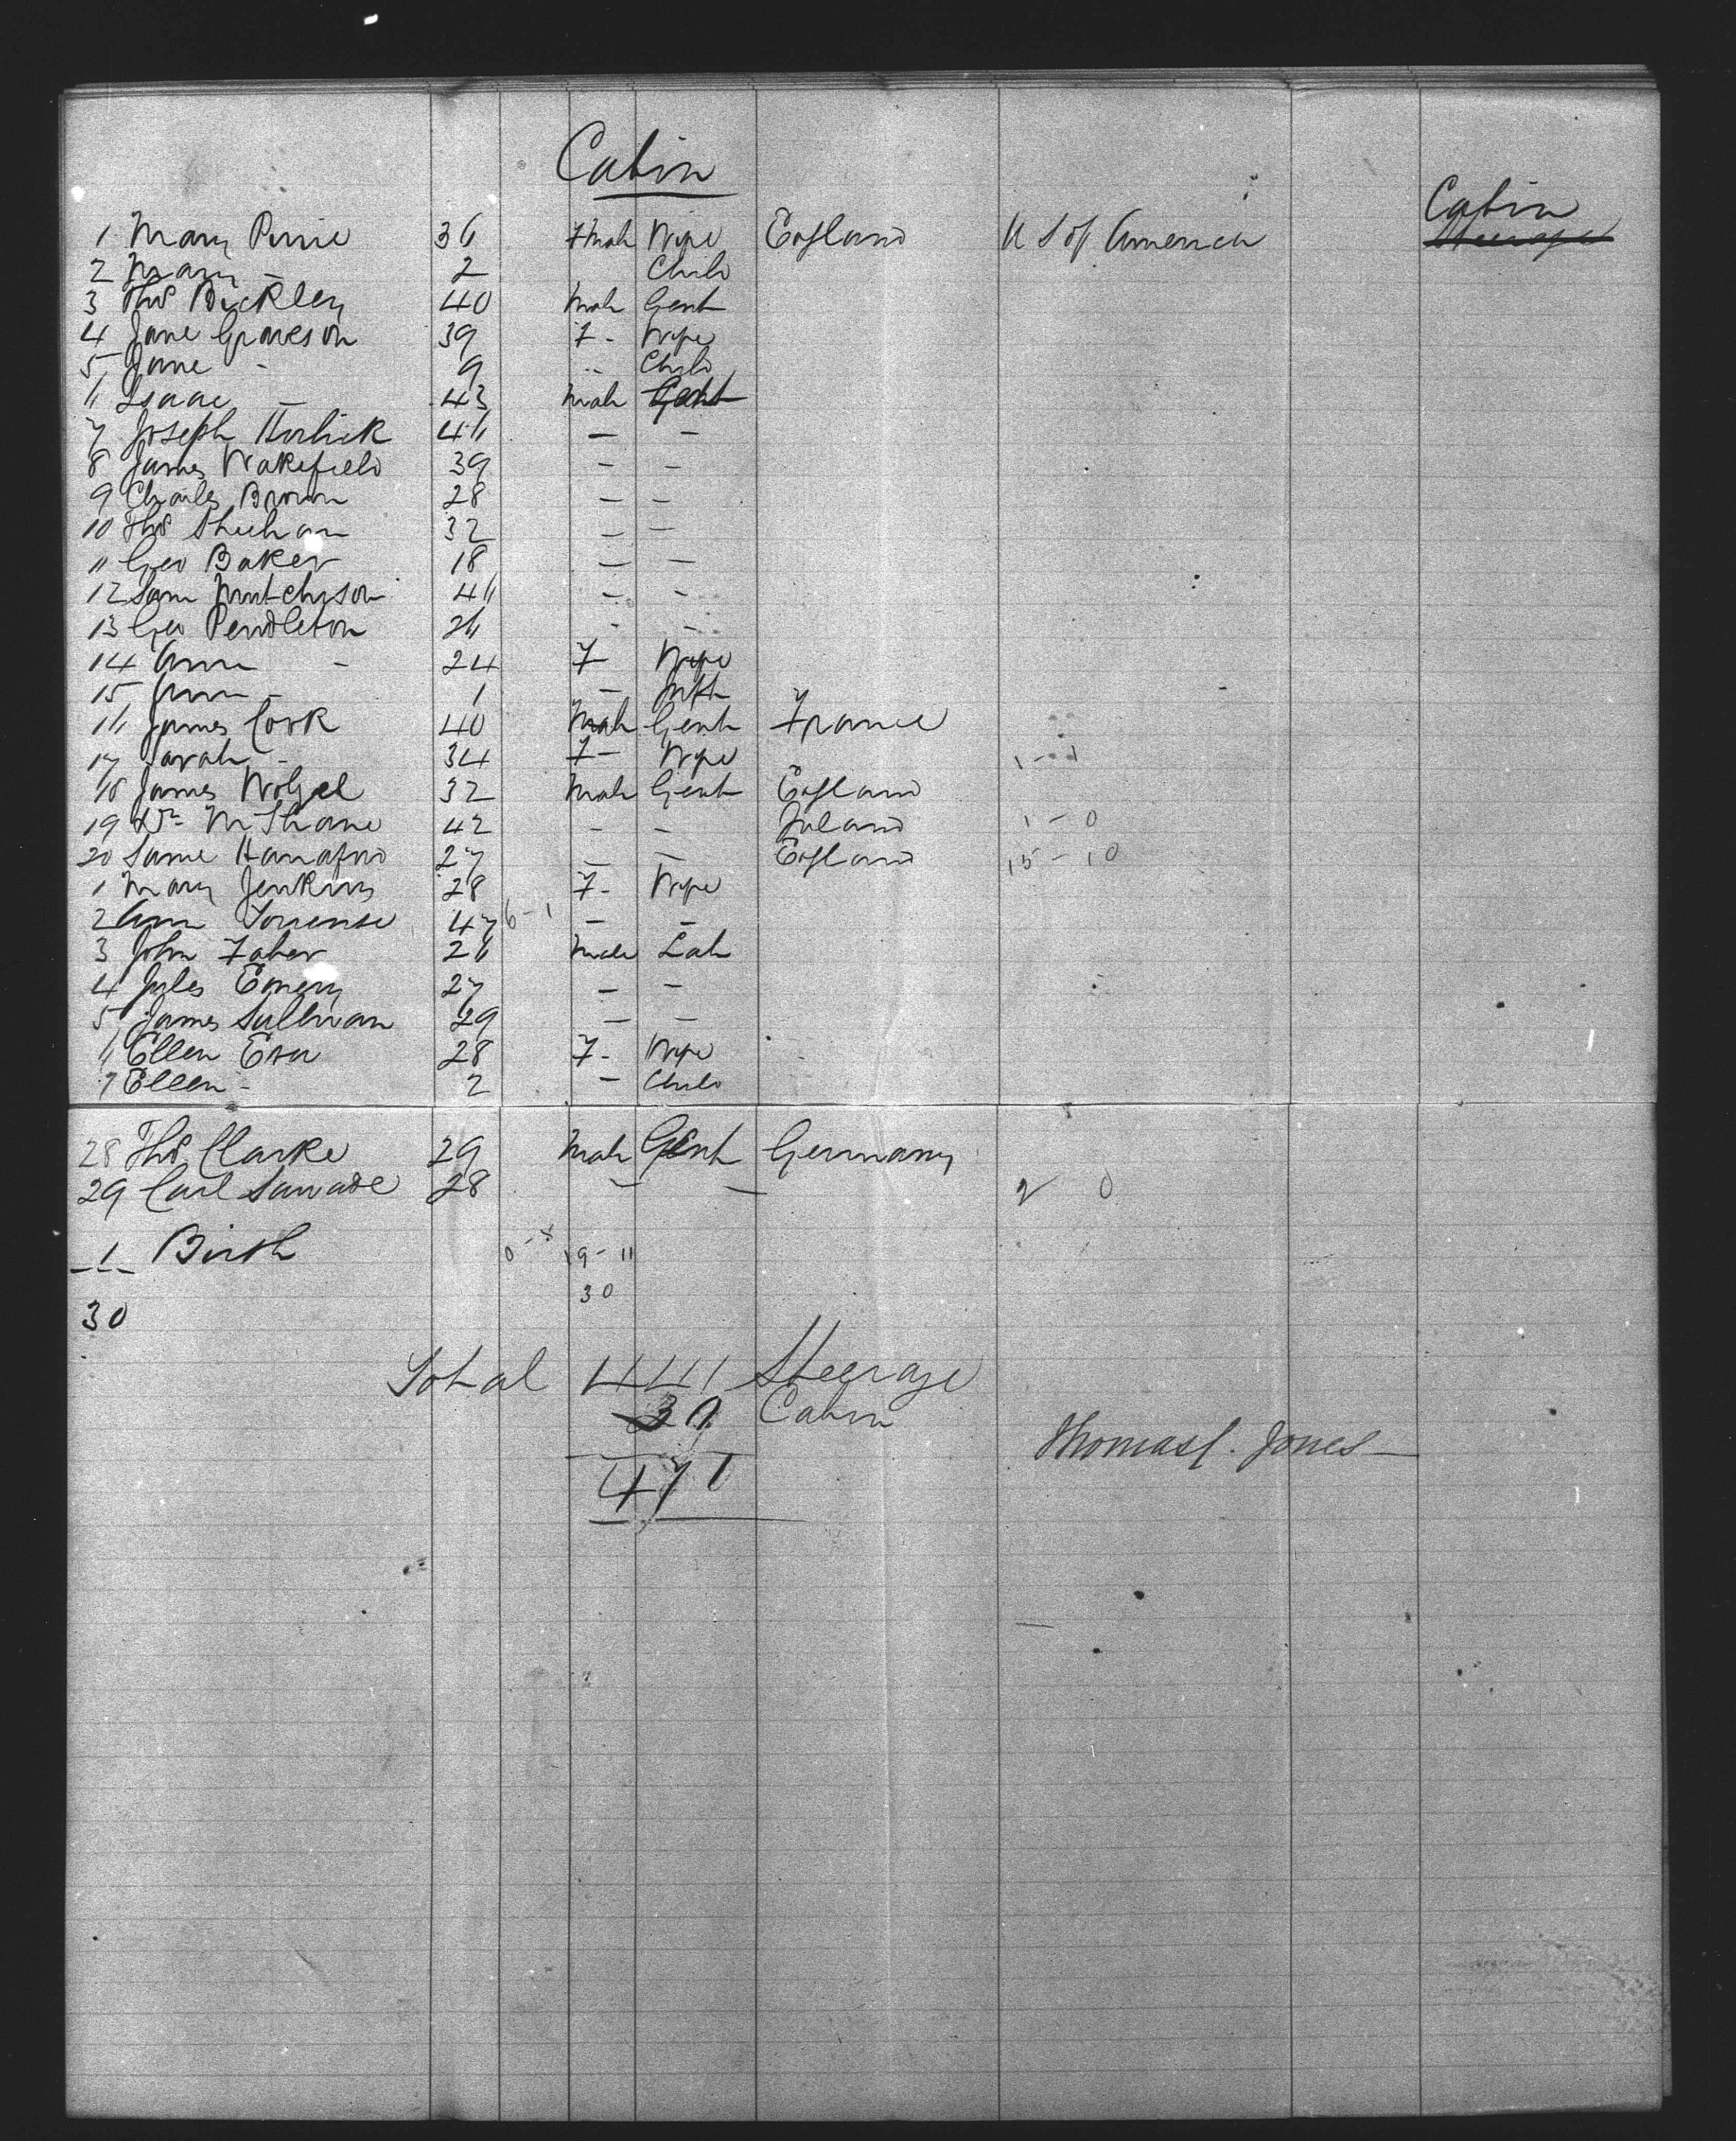 Cabin
Cabin
1 Mary Pirrie 36 Female Wife England U S of America Steerage
2 Mary - 2 Child
3 Thos Bickley 40 Male Gent
4 Jane Grakeson 39 F - Wife
5 Jane - 9 " Child
6 Isaac - 43 Male Gent
7 Joseph Horlick 46 - -
8 James Wakefield 39 - -
9 Charles Brown 28 - -
10 Thos Sheehan 32 - -
11 Geo Baker 18 - -
12 Sam Mutchison 46 - -
13 Geo Pendleton 26 - -
14 Ann - 24 F - Wife
15 Ann - 1 - Inft
16 James Cork 40 Male Gent France
17 Sarah - 34 F - Wife 1 - 1
18 James Wolfel 32 Male Gent England
19 Dr McShane 42 - - Ireland 1 - 0
20 27 - - England 15 - 10
1 Mary Jenkins 28 F - Wife
2 Ann 47 6 - 1 - -
3 John Faber 26 Male Lab
4 Jules Emery 27 - -
5 James Sullivan 29 - -
6 Ellen 28 F - Wife
7 Ellen - 2 - Child
28 Thos Clarke 29 Male Gent Germany
29 Carl 28 - - 2 0
1 Birth 19 - 11
30
30
Total 441 Steerage
30 Cabin
Thomas f. Jones
471